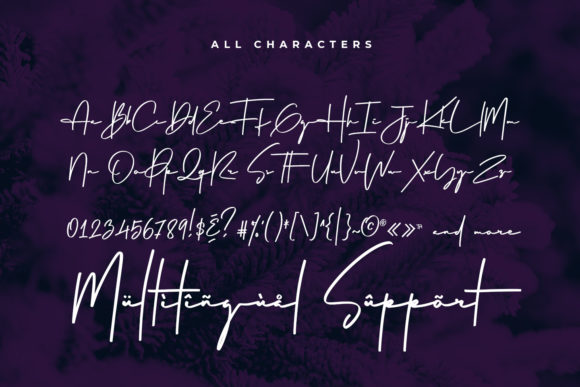 ALL CHARACTERS
Aa Bb Cc Dd Ee Ff Gg Hh Ii Jj Kk Ll Mm
Nn Oo Pp Qq Rr Ss Tt Uu Vv Ww Xx Yy Zz
0123456789!$£? #%'()*[\]^{|}~©®«»™ and more
Mültìlîñgùål Sûppõrt